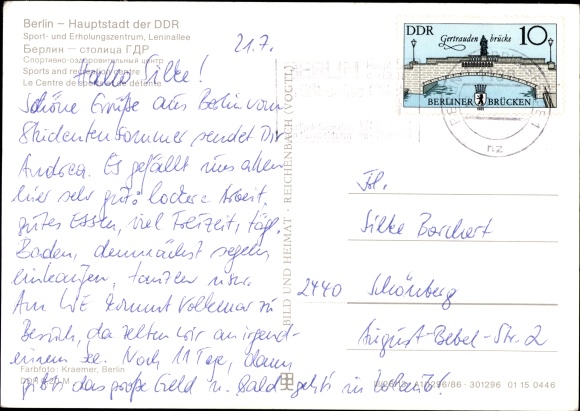 Berlin – Hauptstadt der DDR
Sport- und Erholungszentrum, Leninallee
Берлин – столица ГДР
Спортивно-оздоровительный центр
Sports and recreation centre
Le Centre de sport et de détente
21.7.
Hallo Silke!
Schöne Grüße aus Berlin vom
Studentensommer sendet Dir
Andrea. Es gefällt uns allen
hier sehr gut: lockere Arbeit,
gutes Essen, viel Freizeit, tägl.
Baden, demnächst segeln
einkaufen, tanzen usw.
Am WE kommt Volkmar zu
Besuch, da zelten wir an irgend-
einem See. Noch 11 Tage, dann
gibt's das große Geld u. bald geht's in Urlaub!
Farbfoto: Kraemer, Berlin
BILD UND HEIMAT · REICHENBACH (VOGTL)
DDR
Gertraudenbrücke
10
BERLINER BRÜCKEN
nz
Frl.
Silke Borchert
2440 Schönberg
August-Bebel-Str. 2
301296 01 15 0446